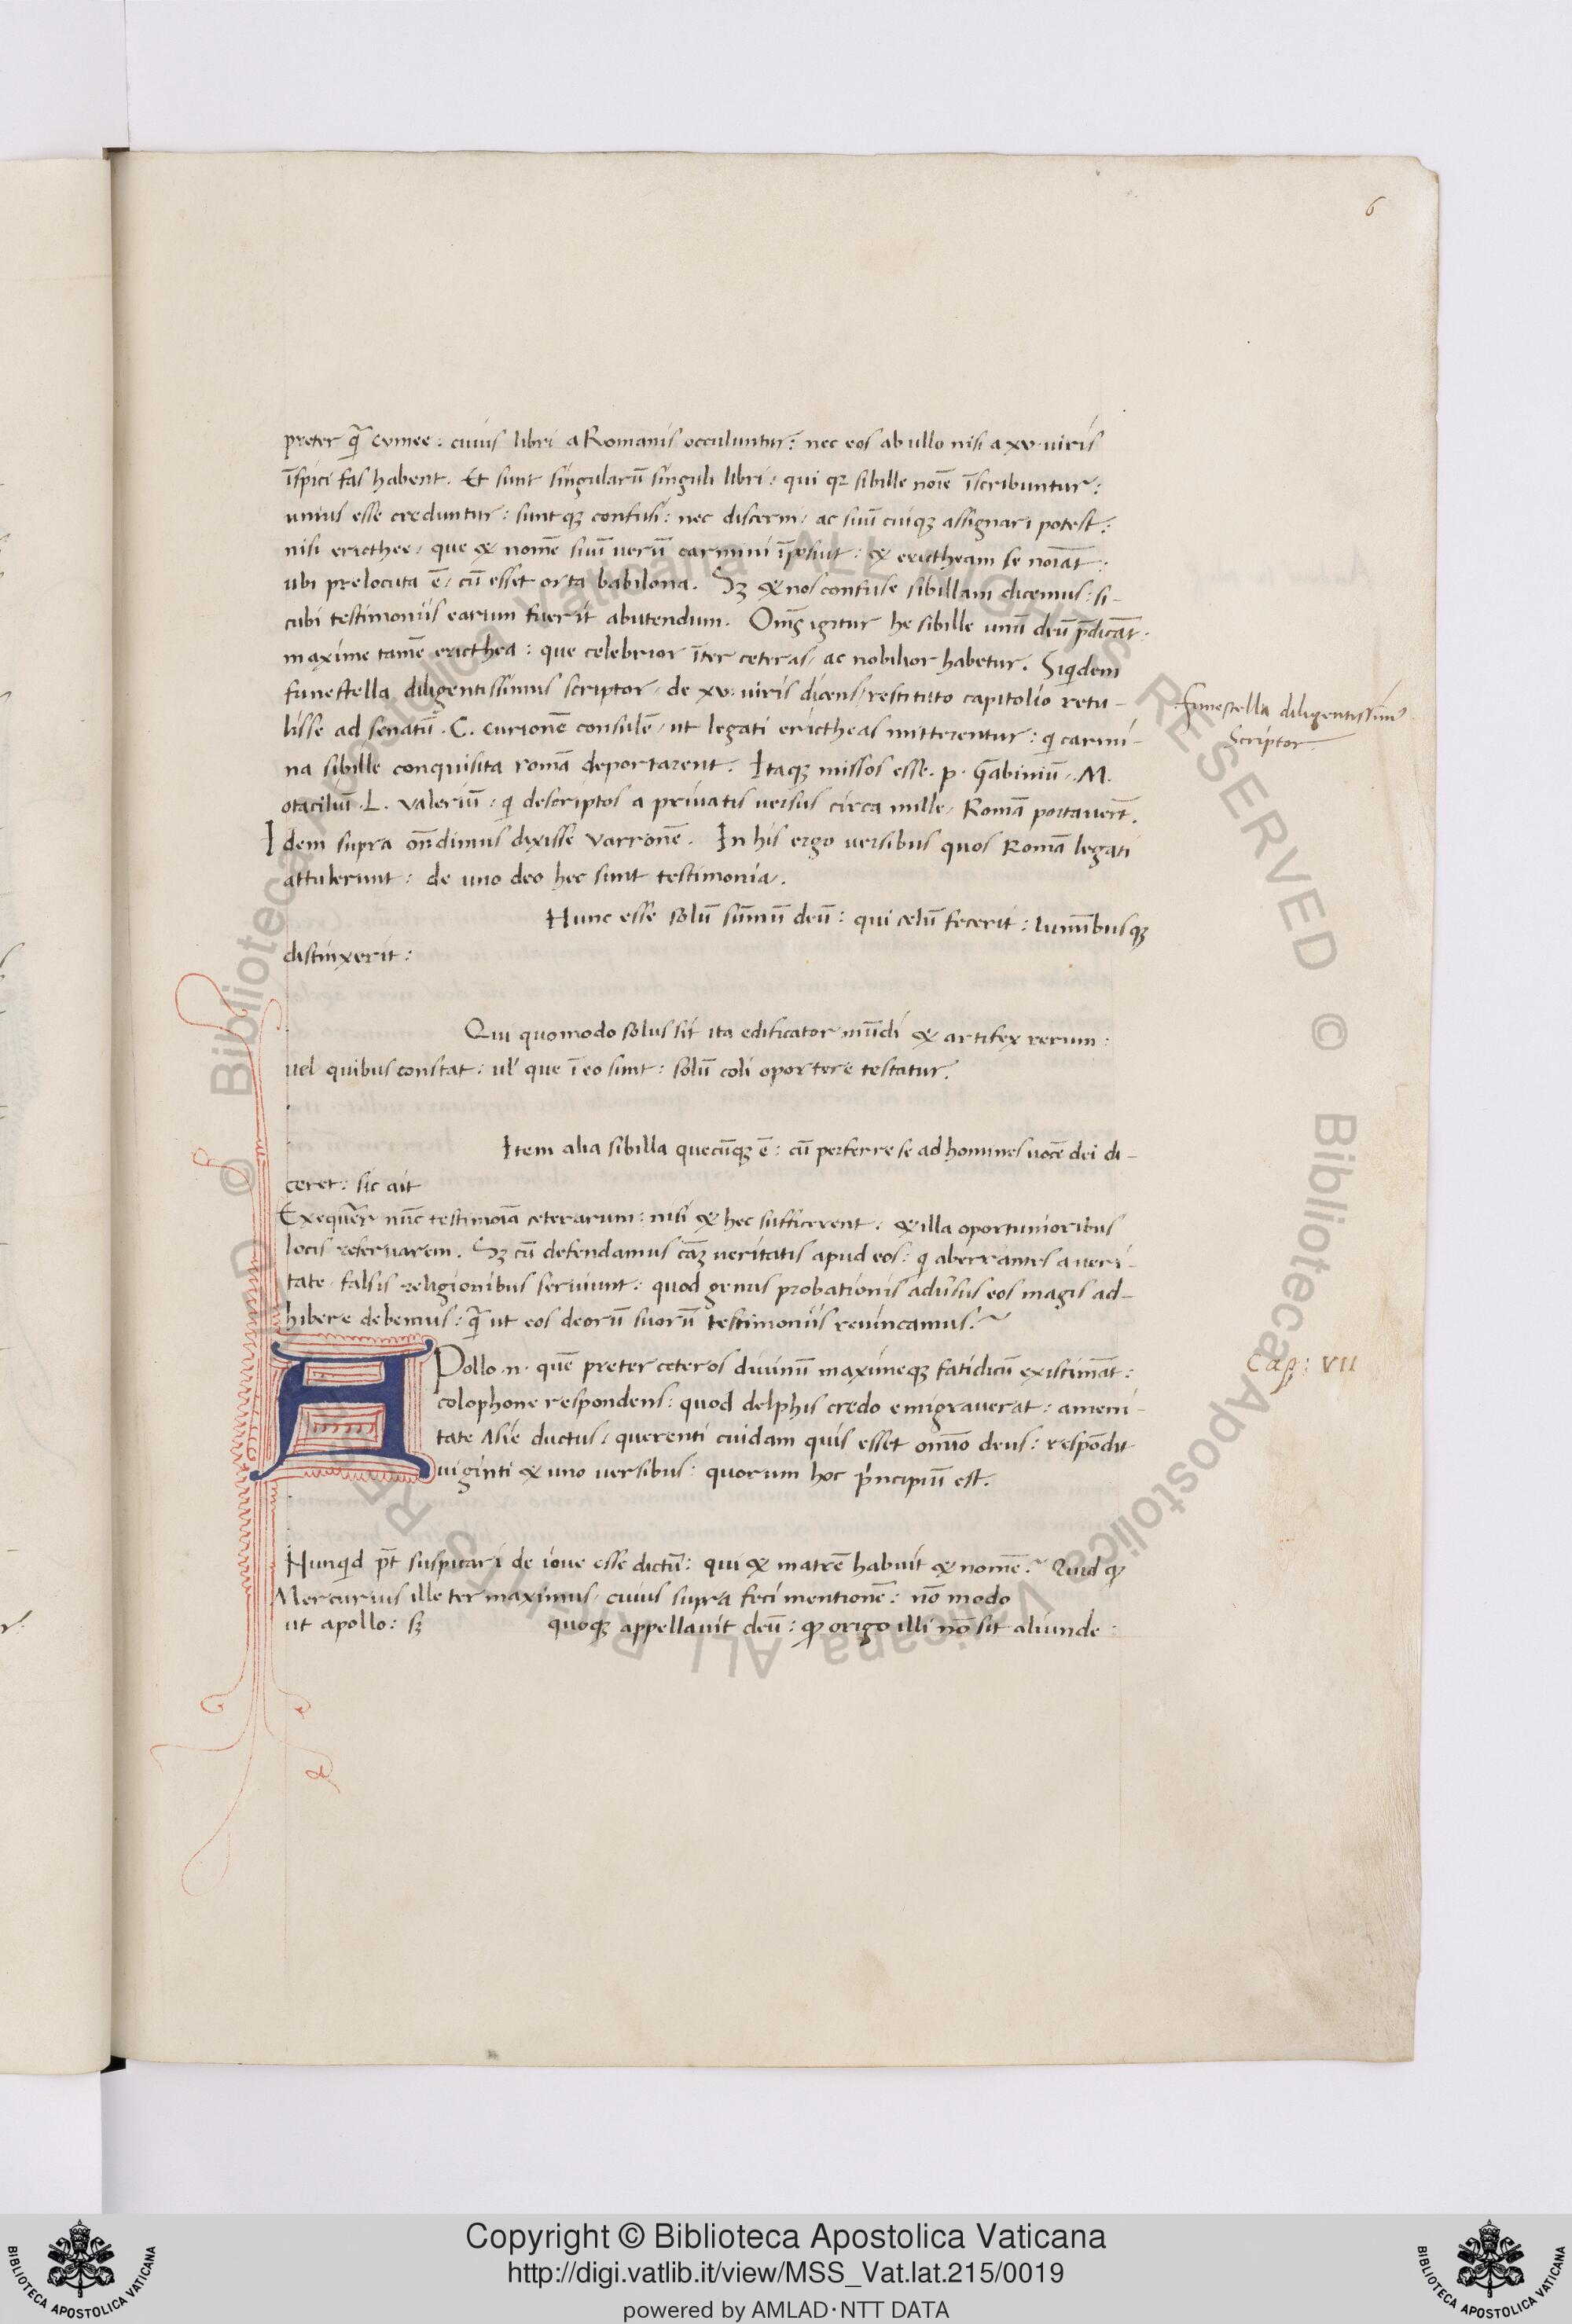 6
preter q̄ cumee : cuius libri a Romanis occuluntur : nec eos ab ullo nisi a xv · uiris
īspici fas habent . Et sunt singularū singuli libri : qui qꝛ sibille noīe īscribuntur :
unius esse creduntur : suntqꝫ confusi : nec discerni / ac suū cuiqꝫ assignari potest :
nisi ericthee / que & nomē suū uerū carmini īseruit : & erictheam se noīat :
ubi prelocuta ē / cū esset orta babilona . Sꝫ & nos confuse sibillam dicemus : si-
cubi testimoniis earum fuerit abutendum . Om̄s igitur he sibille unū deū p̄dicāt .
maxime tamē ericthea : que celebrior īter ceteras / ac nobilior habetur . Siqidem
funestella diligentissimus scriptor / de xv · uiris dicens / restituto capitolio retu-
lisse ad senatū . C . curionē consulē / ut legati erictheas mitterentur : qi carmi-
na sibille conquisita romā deportarent . Itaqꝫ missos esse . p . Gabiniū / . M .
otaciliū . L . valeriū : qi descriptos a priuatis uersus circa mille / Romā portauerūt .
Idem supra ōndimus dixisse varronē . In his ergo uersibus quos Romā legati
attulerunt : de uno deo hec sunt testimonia .
Hunc esse solū summū deū : qui celū fecerit : luminibusqꝫ
distinxerit :
Qui quomodo solus sit ita edificator mūdi & artifex rerum :
uel quibus constat : ul' que ī eo sunt : solū coli oportere testatur .
Item alia sibilla quecūqꝫ ē : cū perferre se ad homines uocē dei di-
ceret : sic ait
Exequerer nūc testimoīa ceterarum : nisi & hec sufficerent : & illa oportunioribus
locis reseruarem . Sꝫ cū defendamus cāꝫ ueritatis apud eos : qi aberrantes a ueri-
tate / falsis religionibus seruiunt : quod genus probationis adūsus eos magis ad-
hibere debemus : q̄ ut eos deorū suorū testimoniis reuincamus ?
APollo · n · quē preter ceteros diuinū maximeqꝫ fatidicū existimāt :
colophone respondens : quod delphis credo emigrauerat : ameni-
tate Asie ductus / querenti cuidam quis esset omīo deus : respōdit
uiginti & uno uersibus : quorum hoc p'ncipiū est .
Nunqid p̄t suspicari de ioue esse dictū : qui & matrē habuit & nomē ? Quid ꝙ
Mercurius ille ter maximus / cuius supra feci mentionē : nō modo
ut apollo : sꝫ quoqꝫ appellauit deū : ꝙ origo illi nō sit aliunde :
funestella diligentissim⁹
Scriptor
Cap̄ : VII
Copyright © Biblioteca Apostolica Vaticana
http://digi.vatlib.it/view/MSS_Vat.lat.215/0019
powered by AMLAD·NTT DATA
BIBLIOTECA APOSTOLICA VATICANA
BIBLIOTECA APOSTOLICA VATICANA
© Biblioteca Apostolica Vaticana ALL RIGHTS RESERVED
© Biblioteca Apostolica Vaticana ALL RIGHTS RESERVED